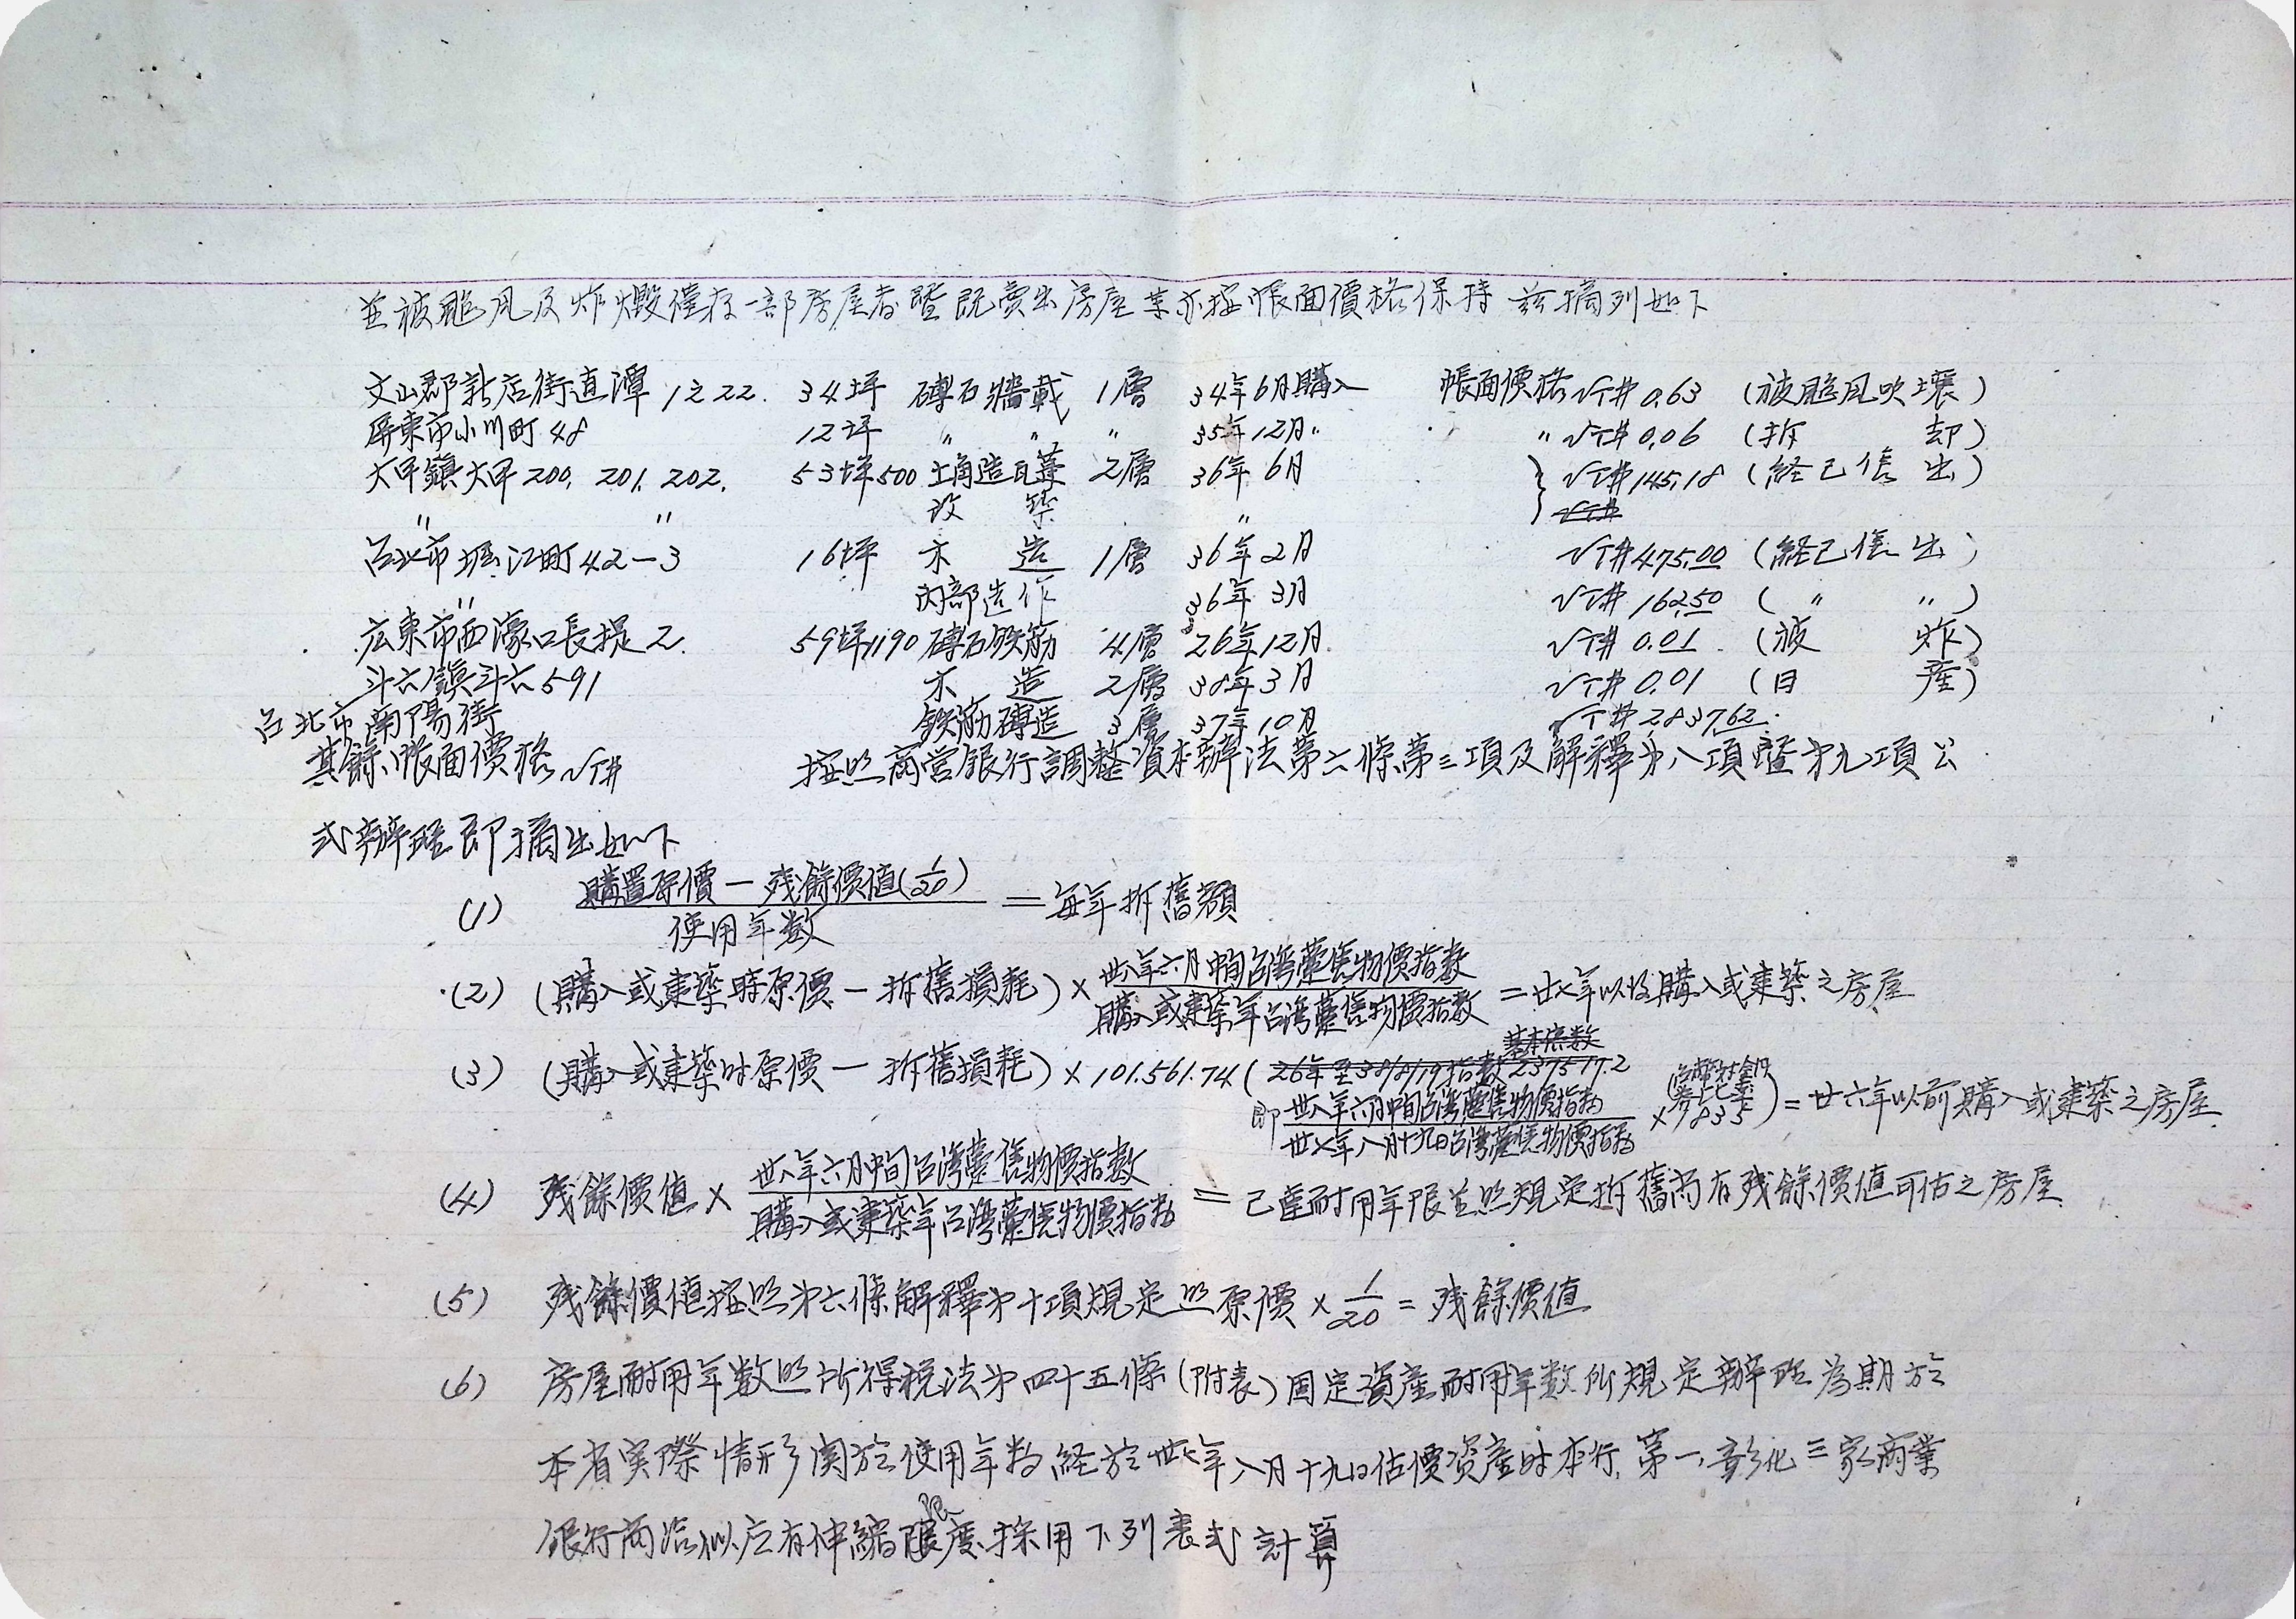 並被颱風及炸燬僅存一部房屋者暨既賣出房屋業亦按帳面價格保持 茲摘列如下
文山郡新店街直潭 1之22. 34坪 磚石牆載 1層 34年6月購入 帳面價格 NT# 0.63 (被颱風吹壞)
屏東市小川町 48 12坪 〃 〃 〃 35年12月〃 〃 NT# 0.06 (拆 却)
大甲鎮大甲 200. 201. 202. 53坪500 土角造瓦葺 2層 36年 6月 NT# 145.18 (経已售出)
〃 〃 改 築 〃 NT#
台北市堀江町 42-3 16坪 木 造 1層 36年 2月 NT# 475.00 (経已售出)
〃 內部造作 36年 3月 NT# 162.50 (〃 〃)
広東市西濠口長堤 2. 59坪1190 磚石鉄筋 4層 26年12月 NT# 0.01 (被 炸)
斗六鎮斗六 591 木 造 2層 38年 3月 NT# 0.01 (日 產)
台北市南陽街 鉄筋磚造 3層 37年10月 NT# 283762.
其餘帳面價格 NT# 按照商営銀行調整資本辦法第六條第三項及解釋第八項暨第九項公
式辦理即摘出如下
(1) 購置原價 − 残餘價值(1/20) / 使用年数 = 每年折舊額
(2) (購入或建築時原價 − 折舊損耗) × 卅八年六月中旬台湾躉售物價指数 / 購入或建築年台湾躉售物價指数 = 廿七年以後購入或建築之房屋
基本倍数
(3) (購入或建築时原價 − 折舊損耗) × 101.561.74 ( 26年至38/8/19指数 237517.2
即 卅八年六月中旬台湾躉售物價指数 / 卅七年八月十九日台湾躉售物價指数 × 1835) = 廿六年以前購入或建築之房屋
(4) 残餘價值 × 卅八年六月中旬台湾躉售物價指数 / 購入或建築年台湾躉售物價指数 = 已達耐用年限並照規定折舊尚有残餘價值可估之房屋
(5) 残餘價值按照第六條解釋第十項規定照原價 × 1/20 = 残餘價值
(6) 房屋耐用年数照所得稅法第四十五條(附表)固定資產耐用年数所規定辦理為期於
本省実際情形関於使用年数経於卅七年八月十九日估價资產时本行. 第一. 彰化三家商業
銀行商洽似应有伸縮限度採用下列表式計算